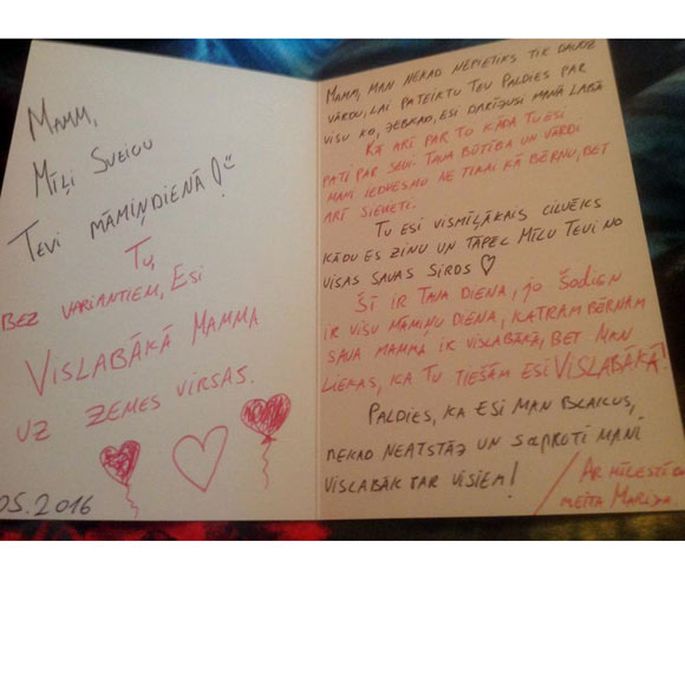 Mamm,
Mīļi Sveicu
Tevi māmiņdienā!
Tu,
bez variantiem, Esi
Vislabākā Mamma
uz zemes virsas.
05.2016
Mamm, man nekad nepietiks tik daudz
vārdu, lai pateiktu Tev Paldies par
visu ko, jebkad, esi darījusi manā labā
Kā arī par to kāda Tu esi
pati par sevi. Tava būtība un vārdi
mani iedvesmo ne tikai kā bērnu, bet
arī sieveti.
Tu esi vismīļākais cilvēks
kādu es zinu un tāpēc Mīlu Tevi no
visas savas sirds ♡
Šī ir Tava diena, jo šodien
ir visu māmiņu diena, katram bērnam
sava mamma ir vislabākā, bet man
liekas, ka Tu tiešām esi VISLABĀKĀ!
Paldies, ka esi man blakus,
nekad neatstāj un saproti mani
vislabāk par visiem!
/ Ar mīlestību
meita Marija.